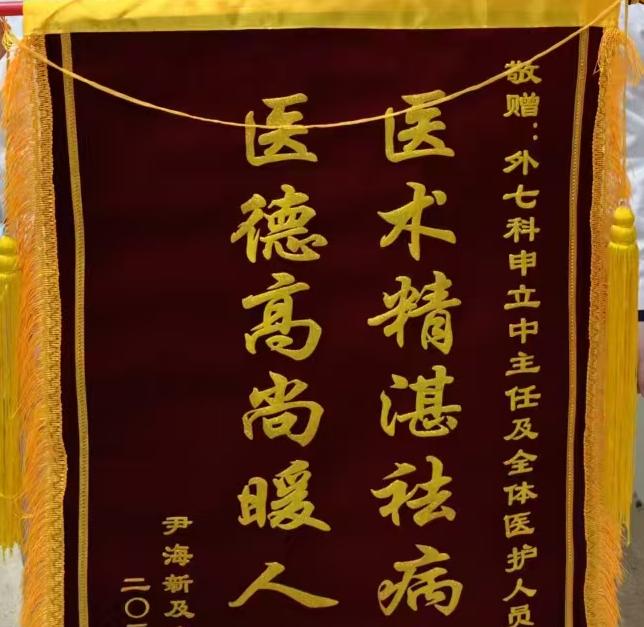 敬赠：外七科申立中主任及全体医护人员
医术精湛祛病
医德高尚暖人
尹海新及
二〇